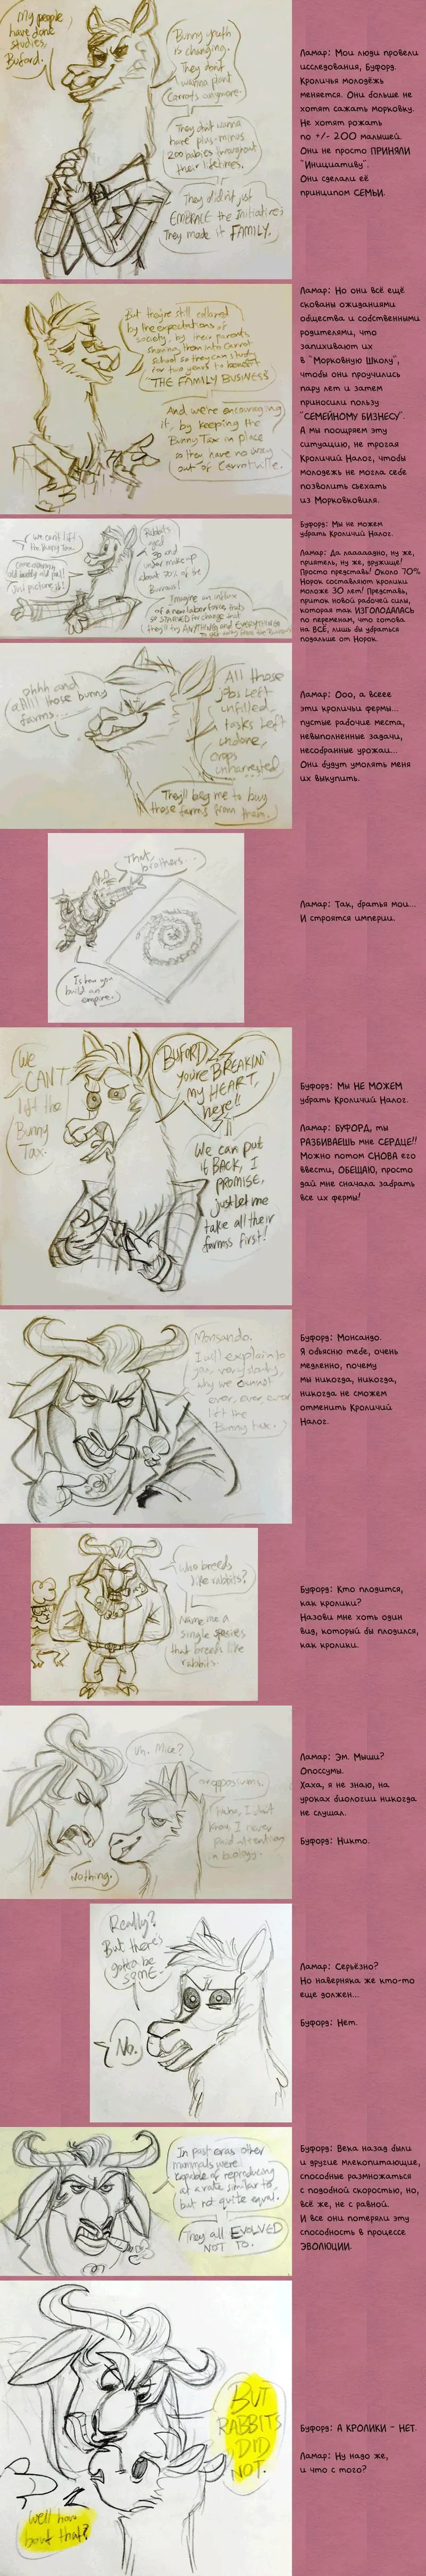 My people
have done
studies,
Buford.
Bunny youth
is changing.
They don't
wanna plant
Carrots anymore.
They don't wanna
have plus-minus
200 babies throughout
their lifetimes.
They didn't just
EMBRACE the Initiative
They made it FAMILY.
Ламар: Мои люди провели
исследования, Буфорд.
Кроличья молодёжь
меняется. Они больше не
хотят сажать морковку.
Не хотят рожать
по +/- 200 малышей.
Они не просто ПРИНЯЛИ
"Инициативу".
Они сделали её
принципом СЕМЬИ.
But they're still collared
by the expectations of
society, by their parents
shoving them into Carrot
School so they can study
for two years to benefit
"THE FAMILY BUSINESS"
And we're encouraging
it, by keeping the
Bunny Tax in place
so they have no way
out of Carrotville.
Ламар: Но они всё ещё
скованы ожиданиями
общества и собственными
родителями, что
запихивают их
в "Морковную Школу",
чтобы они проучились
пару лет и затем
приносили пользу
"СЕМЕЙНОМУ БИЗНЕСУ".
А мы поощряем эту
ситуацию, не трогая
Кроличий Налог, чтобы
молодежь не могла себе
позволить съехать
из Морковковиля.
We can't lift
the Bunny Tax.
old buddy old pal!
Just picture it!
Rabbits
aged
30 and
under make up
about 70% of the
Burrows!
Imagine an influx
of a new labor force, that's
so STARVED for change that
they'll try ANYTHING and EVERYTHING
to get away from the Burrows
Буфорд: Мы не можем
убрать Кроличий Налог.
Ламар: Да лааааадно, ну же,
приятель, ну же, дружище!
Просто представь! Около 70%
Норок составляют кролики
моложе 30 лет! Представь,
приток новой рабочей силы,
которая так ИЗГОЛОДАЛАСЬ
по переменам, что готова
на ВСЁ, лишь бы убраться
подальше от Норок.
ohhh and
aAlll those bunny
farms...
All those
jobs left
unfilled,
tasks left
undone,
crops
unharvested
They'll beg me to buy
those farms from them.
Ламар: Ооо, а всеее
эти кроличьи фермы...
пустые рабочие места,
невыполненные задачи,
несобранные урожаи...
Они будут умолять меня
их выкупить.
That,
brothers...
Is how you
build an
empire.
Ламар: Так, братья мои...
И строятся империи.
We
CAN'T
lift the
Bunny
Tax.
BUFORD
you're BREAKIN'
MY HEART,
here!!
We can put
it BACK, I
PROMISE,
just let me
take all their
farms first!
Буфорд: Мы НЕ МОЖЕМ
убрать Кроличий Налог.
Ламар: БУФОРД, ты
РАЗБИВАЕШЬ мне СЕРДЦЕ!!
Можно потом СНОВА его
ввести, ОБЕЩАЮ, просто
дай мне сначала забрать
все их фермы!
Monsando.
I will explain to
you, very slowly
why we cannot
ever, ever, ever
lift the
Bunny tax.
Буфорд: Монсандо.
Я объясню тебе, очень
медленно, почему
мы никогда, никогда,
никогда не сможем
отменить Кроличий
Налог.
Who breeds
like rabbits?
Name me a
single species
that breeds like
rabbits.
Буфорд: Кто плодится,
как кролики?
Назови мне хоть один
вид, который бы плодился,
как кролики.
Uh. Mice?
opposiums.
haha, I don't
know, I never
paid attention
in biology.
Nothing.
Ламар: Эм. Мыши?
Опоссумы.
Хаха, я не знаю, на
уроках биологии никогда
не слушал.
Буфорд: Никто.
Really?
But there's
gotta be
SOME-
No.
Ламар: Серьёзно?
Но наверняка же кто-то
еще должен...
Буфорд: Нет.
In past eras other
mammals were
capable of reproducing
at a rate similar to,
but not quite equal.
They all EVOLVED
NOT TO.
Буфорд: Века назад были
и другие млекопитающие,
способные размножаться
с подобной скоростью, но,
всё же, не с равной.
И все они потеряли эту
способность в процессе
ЭВОЛЮЦИИ.
BUT
RABBITS
DID
NOT.
Well how
bout that?
Буфорд: А КРОЛИКИ - НЕТ.
Ламар: Ну надо же,
и что с того?